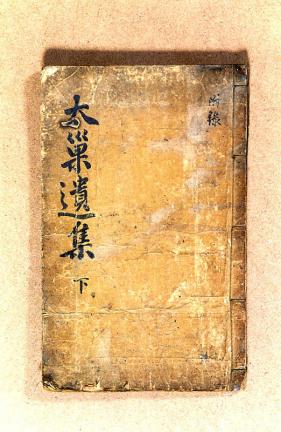 附錄
太巢遺集
下